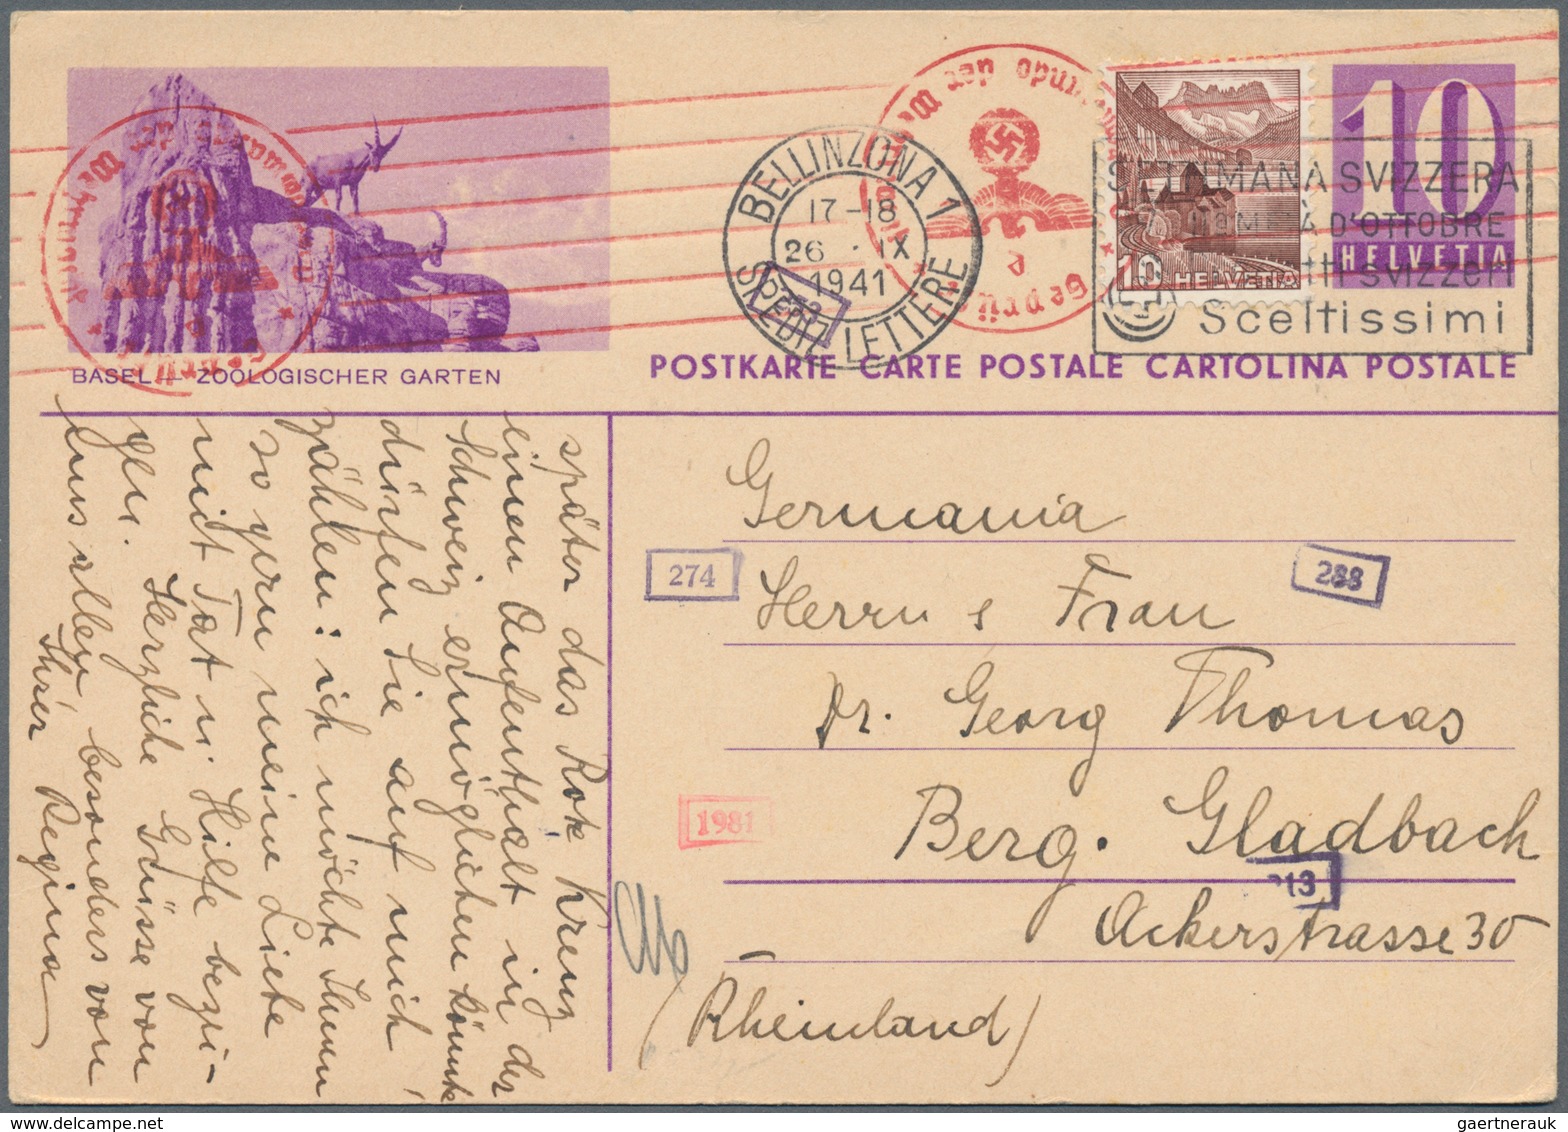 BASEL — ZOOLOGISCHER GARTEN
BELLINZONA 1
17-18
26 IX
1941
SPEDIZ. LETTERE
der
Geprüft
10
HELVETIA
10
HELVETIA
SETTIMANA SVIZZERA
METÀ D'OTTOBRE
SVIZZERI
Sceltissimi
POSTKARTE CARTE POSTALE CARTOLINA POSTALE
später das Rote Kreuz
einen Aufenthalt in der
Schweiz ermöglichen könnte
dürfen Sie auf mich
zählen: ich möchte Ihnen
so gern meine Liebe
mit Tat u. Hilfe bezei-
gen. Herzliche Grüsse von
uns allen besonders von
Ihrer Regina
Germania
274
288
Herrn & Frau
Dr. Georg Thomas
1981
Berg. Gladbach
213
Ackerstrasse 30
(Rheinland)
gaertnerauk